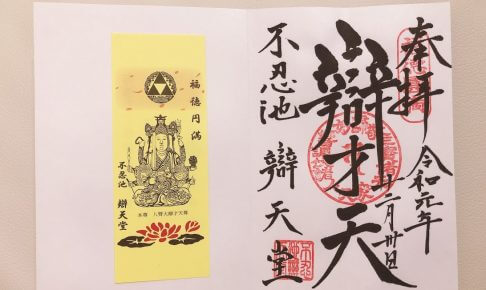 奉拝
令和元年
十二月卅日
辯才天
不忍池 辯天堂
福徳円満
不忍池 辯天堂
本尊 八臂大辯才天尊